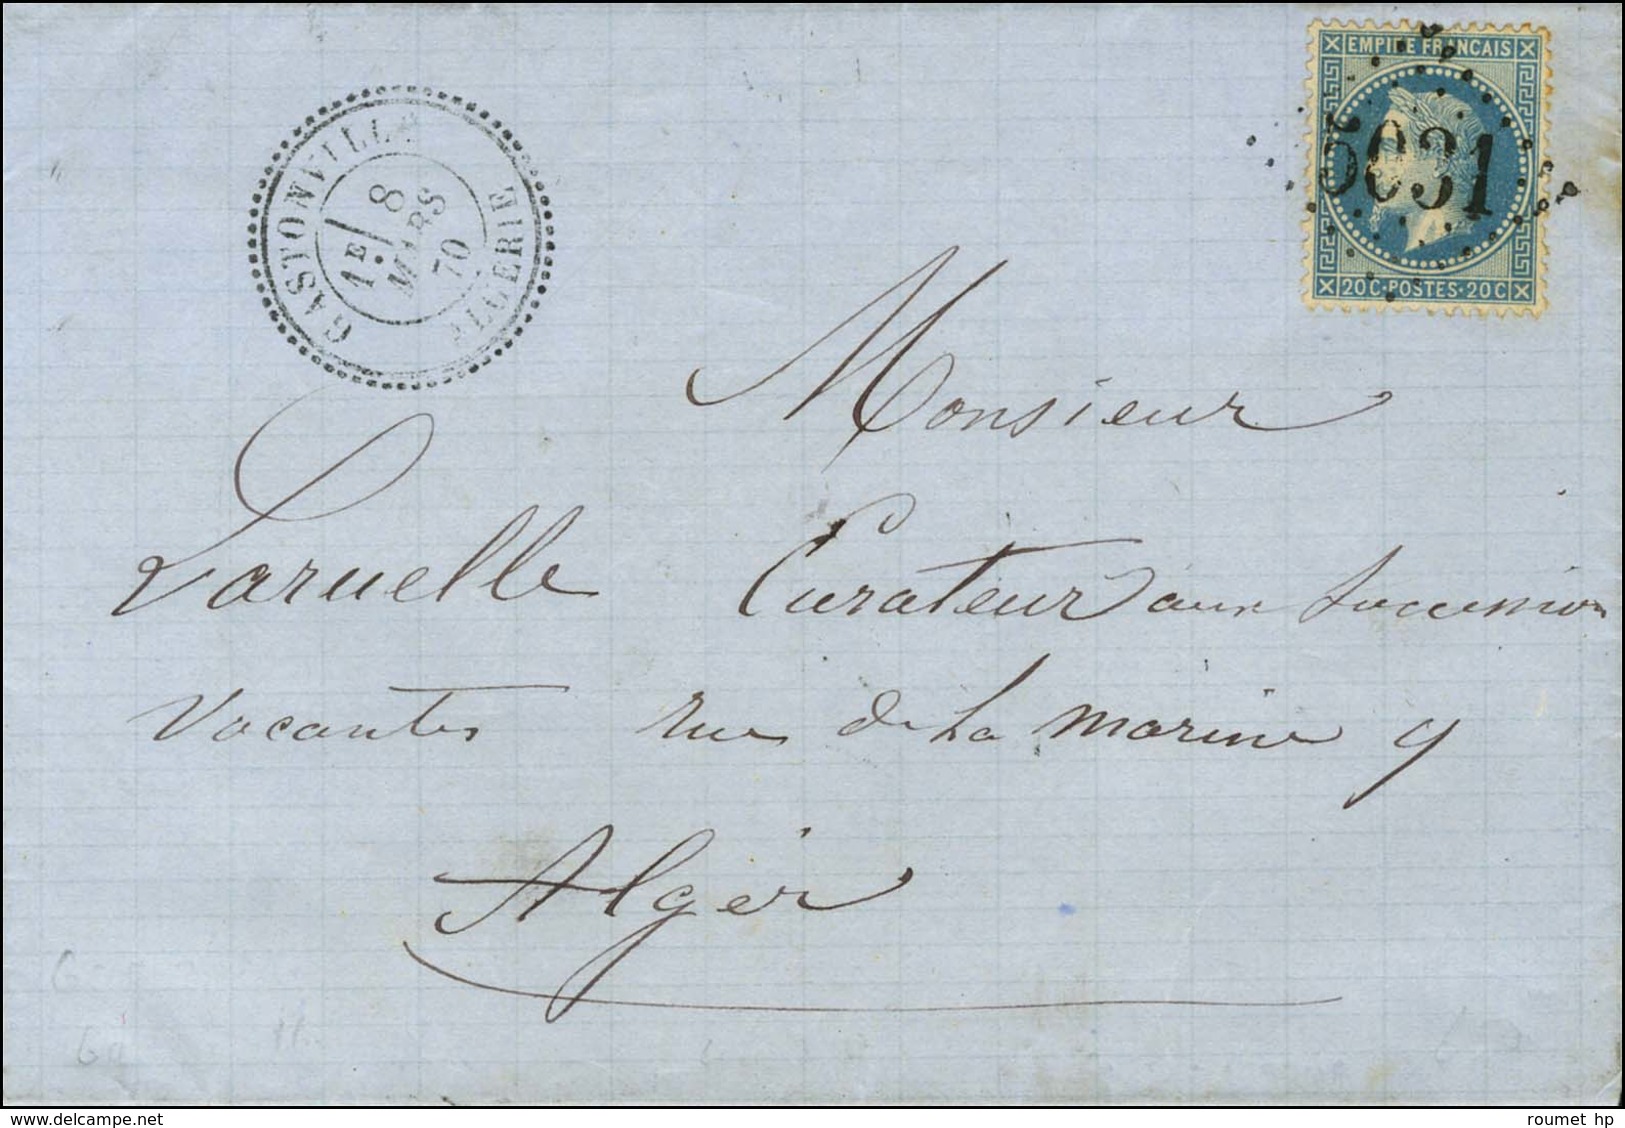 GASTONVILLE
ALGERIE
1E
8
MARS
70
EMPIRE FRANCAIS
5031
20 C · POSTES · 20 C
Monsieur
Laruelle Curateur aux succession
Vacantes rue de la marine 9
Alger
roumet hp